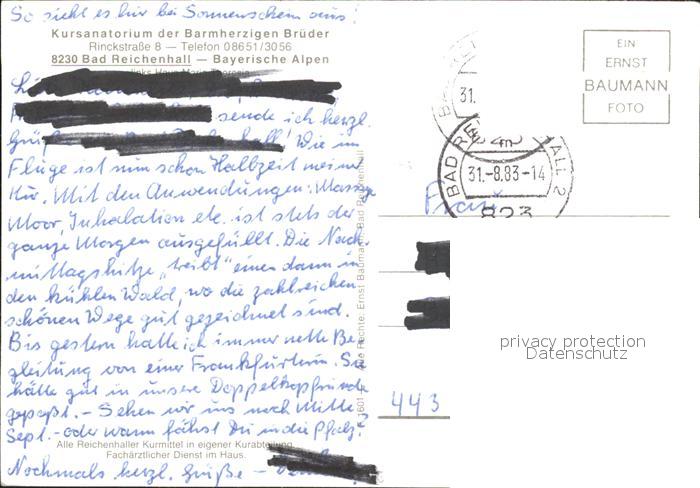 So sieht es hier bei Sonnenschein aus!
Kursanatorium der Barmherzigen Brüder
Rinckstraße 8 — Telefon 08651/3056
8230 Bad Reichenhall — Bayerische Alpen
links Haus Maria Theresia
sende ich herzl.
Grüße
hall! Wie im
Fluge ist nun schon Halbzeit meiner
Kur. Mit den Anwendungen: Massage
Moor, Inhalation etc. ist stets der
ganze Morgen ausgefüllt. Die Nach-
mittagshitze „treibt" einen dann in
den kühlen Wald, wo die zahlreichen
schönen Wege gut gezeichnet sind.
Bis gestern hatte ich immer nette Be-
gleitung von einer Frankfurterin. Sie
hätte gut in unsere Doppelkopfrunde
gepaßt. – Sehen wir uns noch Mitte
Sept. – oder wann fährst Du in die Pfalz?
Alle Reichenhaller Kurmittel in eigener Kurabteilung.
Fachärztlicher Dienst im Haus.
Nochmals herzl. Grüße –
Alle Rechte: Ernst Baumann, Bad Reichenhall
EIN
ERNST
BAUMANN
FOTO
31.
BAD REICHENHALL 2
31.-8.83-14
823
Frau
443
privacy protection
Datenschutz